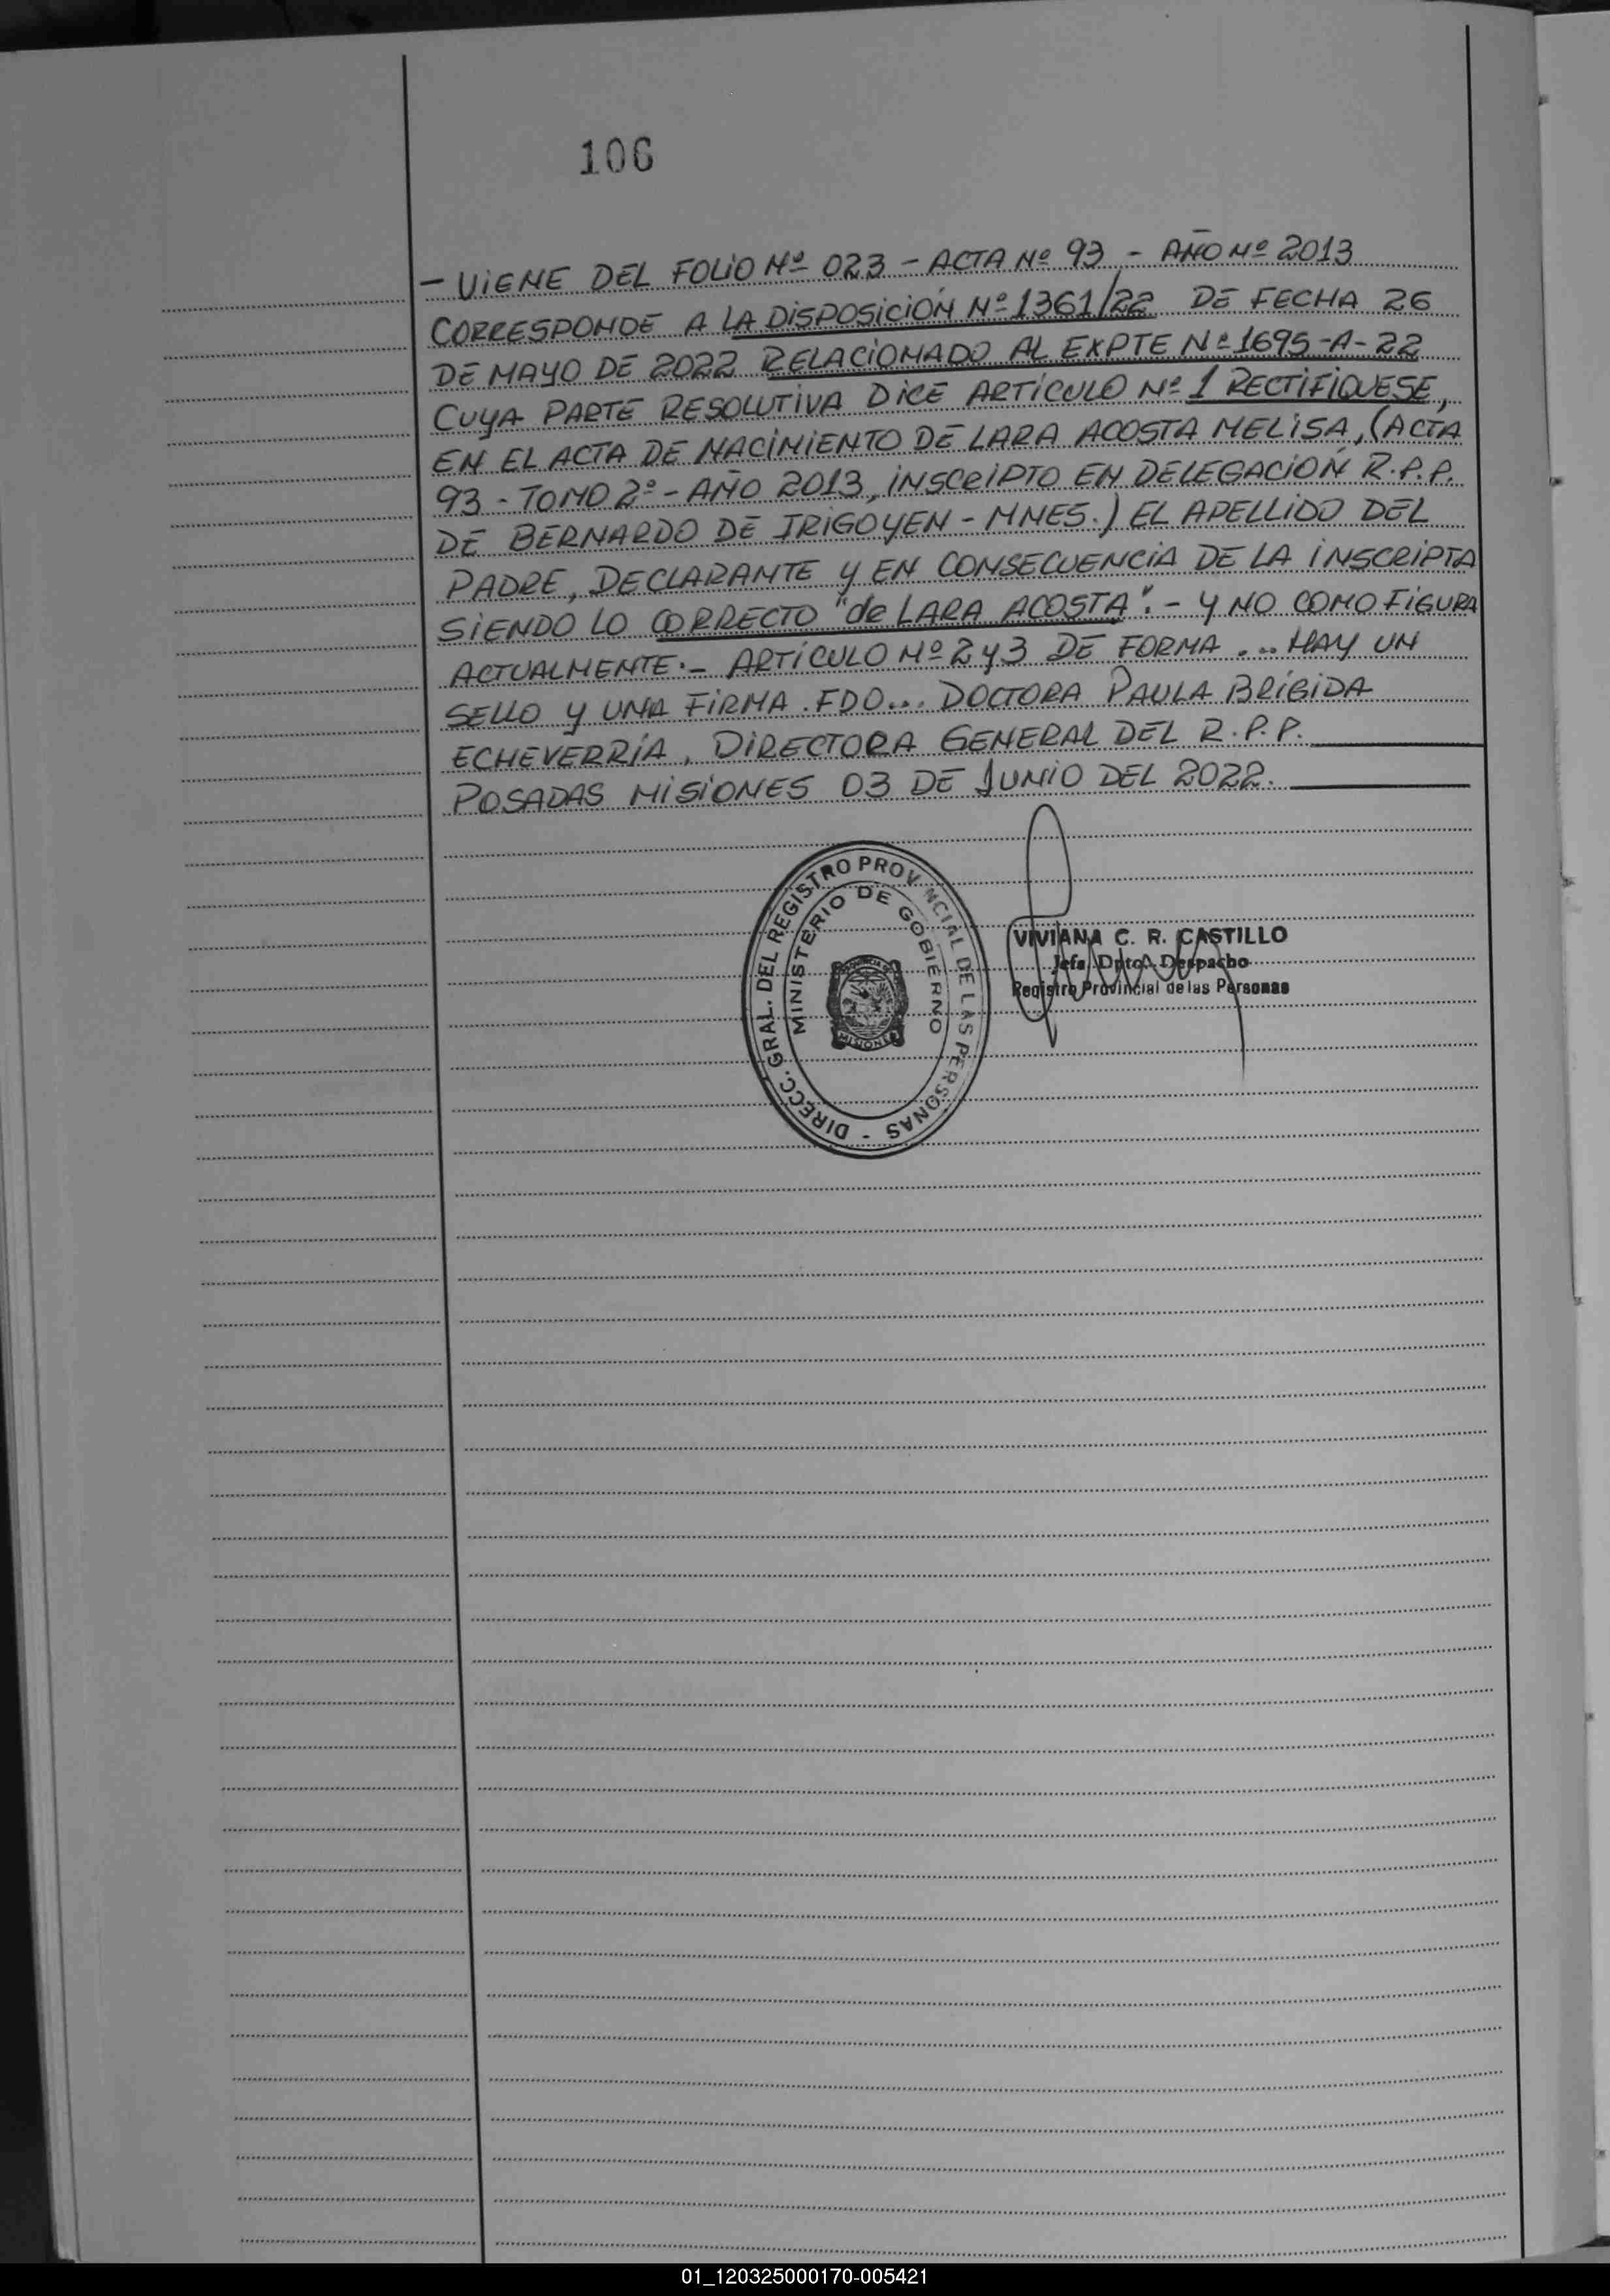 106
- VIENE DEL FOLIO Nº 023 - ACTA Nº 93 - AÑO Nº 2013
CORRESPONDE A LA DISPOSICIÓN Nº 1361/22 DE FECHA 26
DE MAYO DE 2022 RELACIONADO AL EXPTE Nº 1695-A-22
CUYA PARTE RESOLUTIVA DICE ARTÍCULO Nº 1 RECTIFÍQUESE,
EN EL ACTA DE NACIMIENTO DE LARA ACOSTA MELISA, (ACTA
93 - TOMO 2º - AÑO 2013, INSCRIPTO EN DELEGACIÓN R.P.P.
DE BERNARDO DE IRIGOYEN - MNES.) EL APELLIDO DEL
PADRE, DECLARANTE Y EN CONSECUENCIA DE LA INSCRIPTA
SIENDO LO CORRECTO "de LARA ACOSTA". - Y NO COMO FIGURA
ACTUALMENTE.- ARTÍCULO Nº 2 Y 3 DE FORMA ... HAY UN
SELLO Y UNA FIRMA. FDO... DOCTORA PAULA BRÍGIDA
ECHEVERRÍA, DIRECTORA GENERAL DEL R.P.P.
POSADAS MISIONES 03 DE JUNIO DEL 2022.
DIRECC. GRAL. DEL REGISTRO PROVINCIAL DE LAS PERSONAS -
MINISTERIO DE GOBIERNO
MISIONES
VIVIANA C. R. CASTILLO
Jefa Dpto. Despacho
Registro Provincial de las Personas
01_120325000170-005421